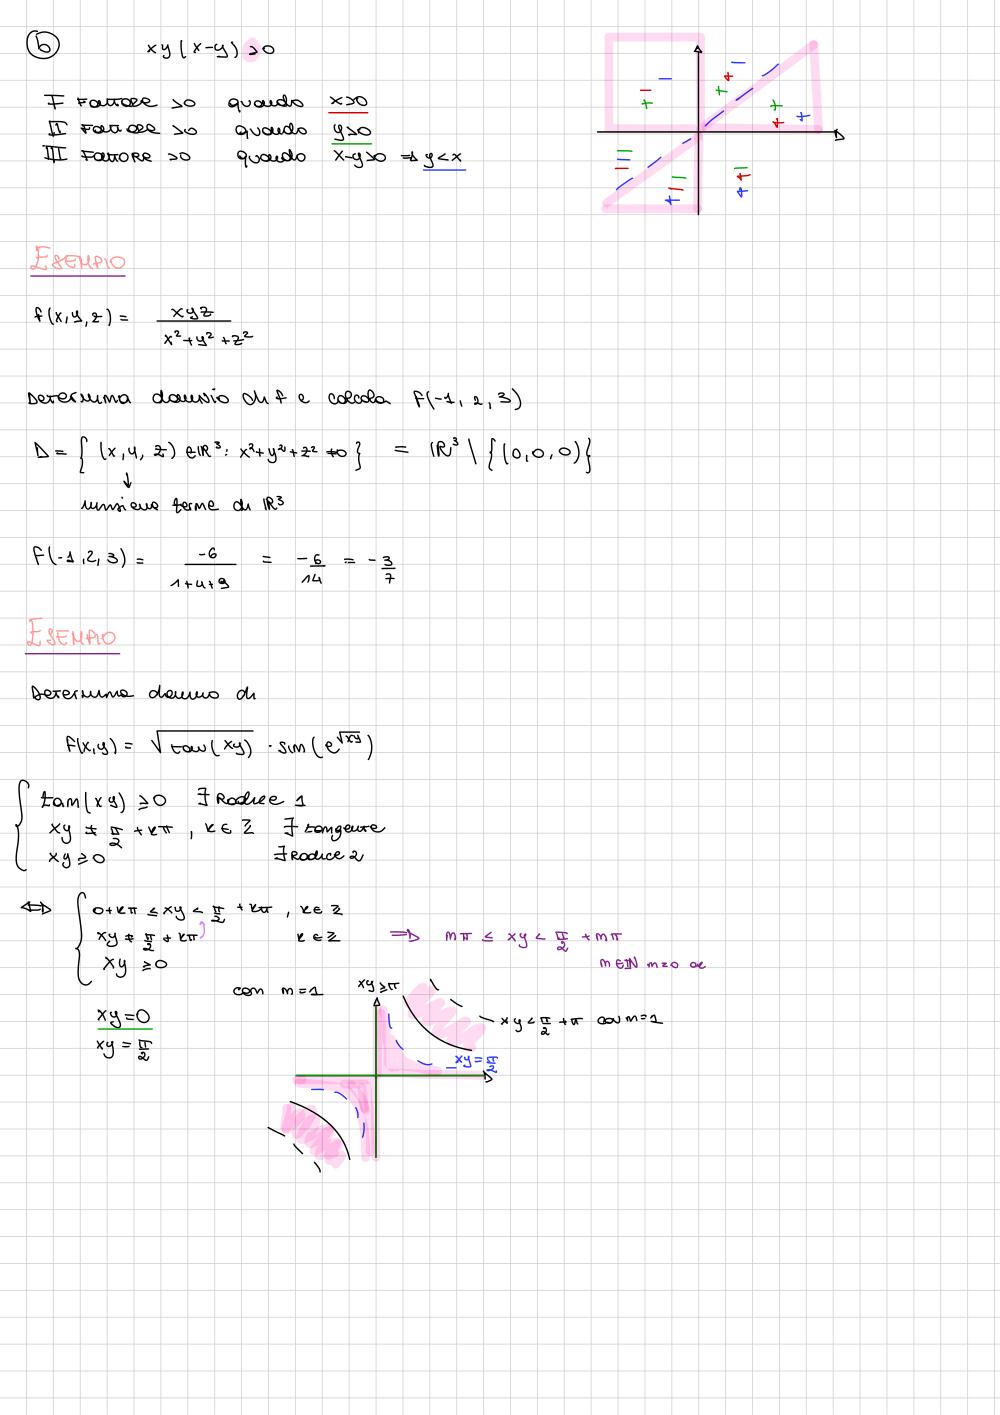 b xy(x-y)>0
I FATTORE >0 quando x>0
II FATTORE >0 quando y>0
III FATTORE >0 quando x-y>0 ⇒ y<x
ESEMPIO
f(x,y,z) = xyz / x²+y²+z²
Determina dominio di f e calcola f(-1, 2, 3)
D = { (x, y, z) ∈ ℝ³: x²+y²+z² ≠0 } = ℝ³ \ {(0,0,0)}
↓
terne di ℝ³
f(-1,2,3) = -6 / 1+4+9 = -6/14 = -3/7
ESEMPIO
Determina dominio di
f(x,y) = √tan(xy) · sin(e^√xy)
tan(xy) ≥0 ∃ Radice 1
xy ≠ π/2 + kπ , k∈ℤ ∃ tangente
xy ≥0 ∃ Radice 2
⇔ 0+kπ ≤ xy < π/2 + kπ , k∈ℤ
xy ≠ π/2 + kπ k∈ℤ ⇒ mπ ≤ xy < π/2 + mπ
xy ≥0 m∈ℕ m=0
con m=1 xy≥π
xy=0 xy < π/2 + π con m=1
xy = π/2 xy = π/2